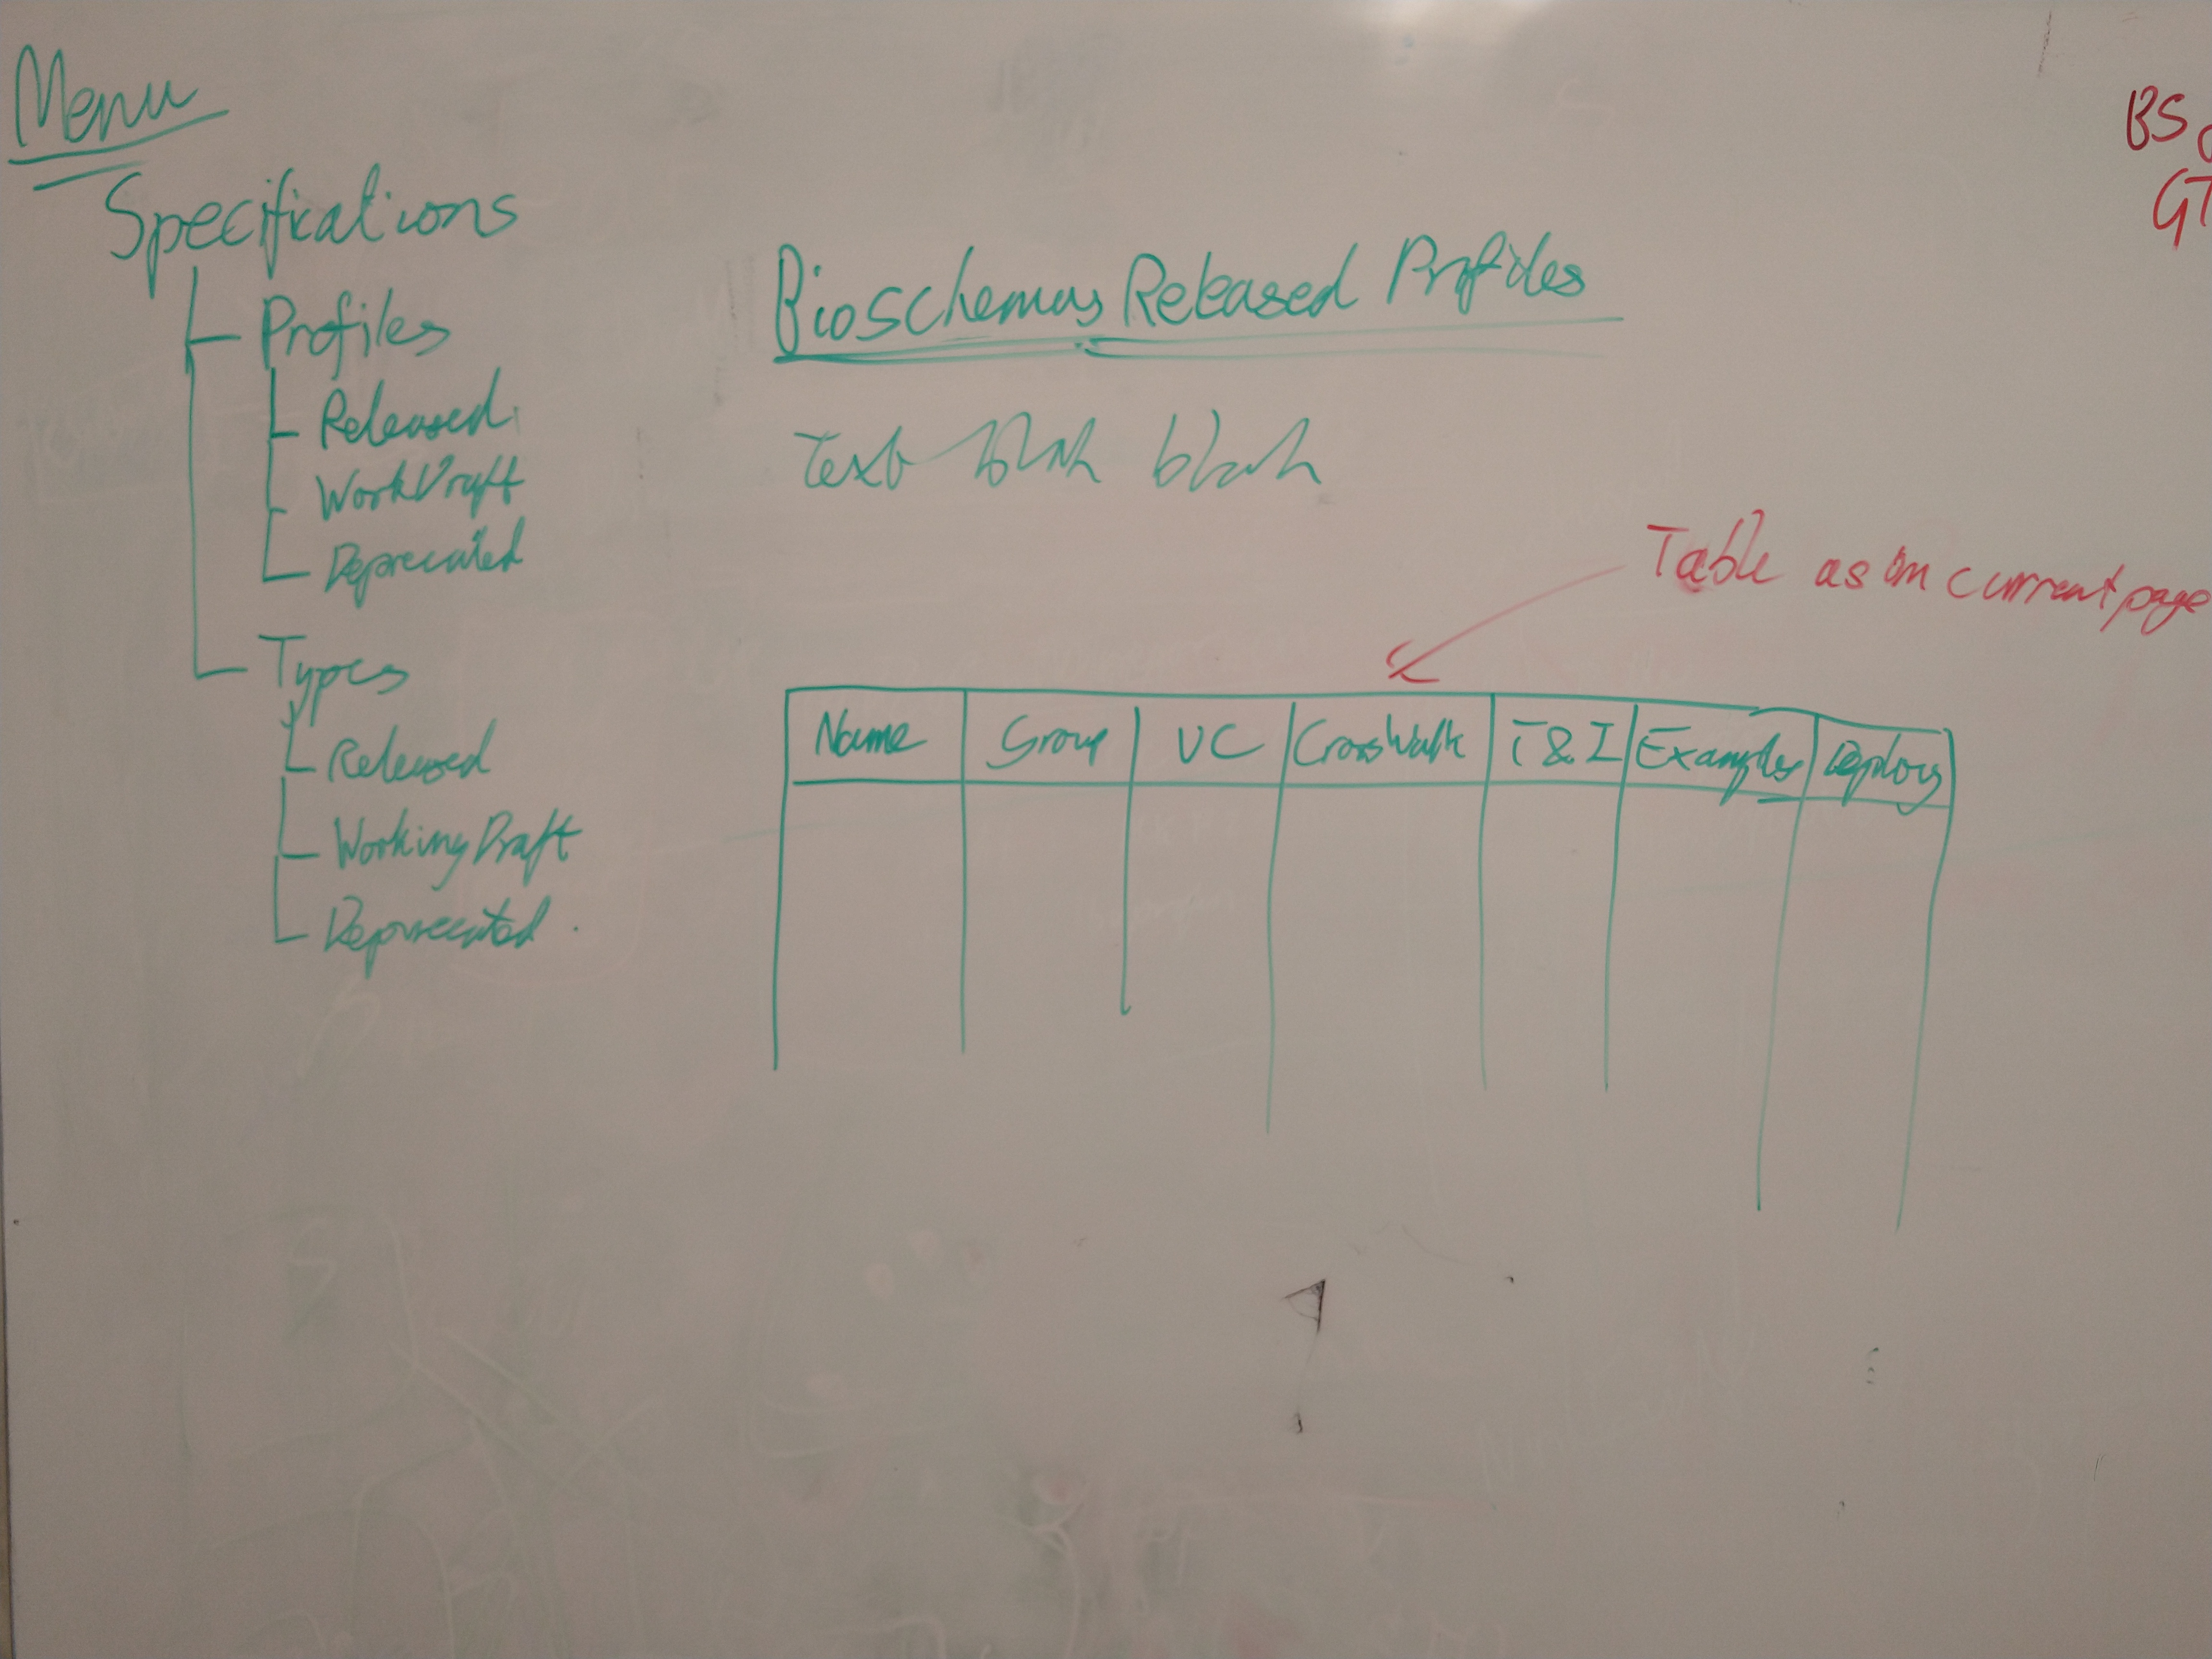 Menu
Specifications
Profiles
Released
WorkDraft
Deprecated
Types
Released
Working Draft
Deprecated
Bioschemas Released Profiles
Text blah blah
Table as on current page
Name Group UC CrossWalk T&I Examples Deploys
BS
GT